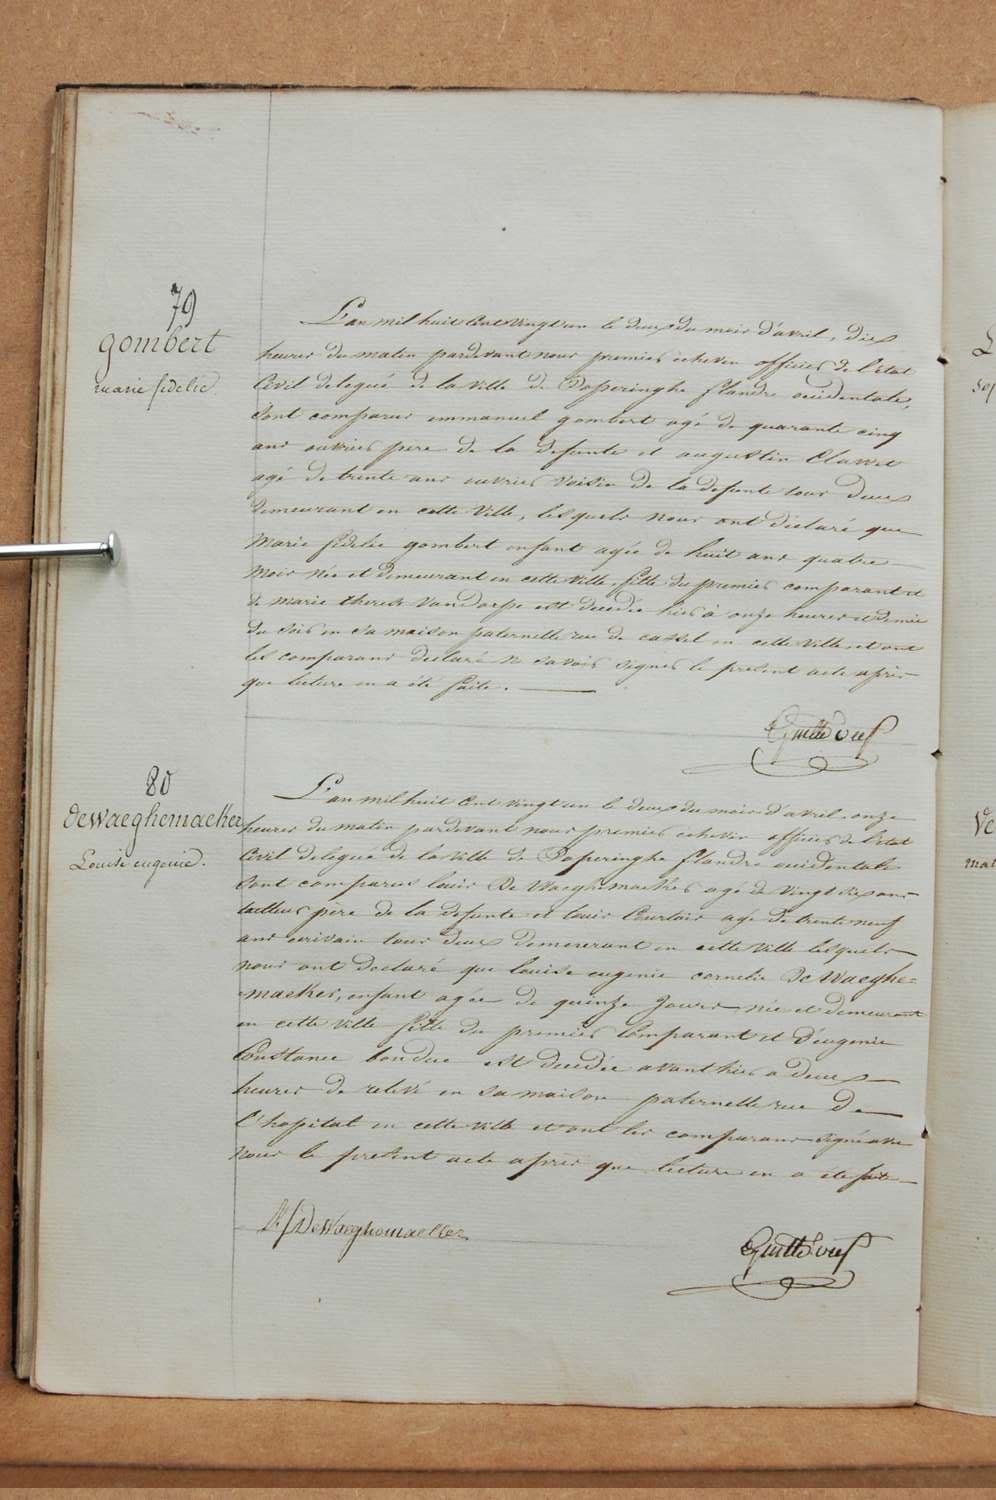 79
gombert
marie fidelie.
L'an mil huit Cent vingt un le deux du mois d'avril, dix
heures du matin pardevant nous premier echevin officier de l'état
Civil delegué de la ville de Poperinghe flandre occidentale,
Sont comparus emmanuel gombert agé de quarante cinq
ans ouvrier pere de la defunte et augustin Clawet
agé de trente ans ouvrier voisin de la defunte tous deux
demeurant en cette Ville, lesquels nous ont déclaré que
Marie fidelie gombert enfant agée de huit ans quatre
Mois née et demeurant en cette ville, fille du premier comparant et
de marie therese Vandorpe est decedée hier à onze heures et demie
du soir en sa maison paternelle rue de cassel en cette Ville, et ont
les comparans declaré ne savoir signer le present acte après
que lecture en a été faite.
80
deWaeghemaeker
Louise eugenie.
L'an mil huit Cent vingt un le deux du mois d'avril, onze
heures du matin pardevant nous premier echevin officier de l'état
Civil delegué de la ville de Poperinghe flandre occidentale
Sont comparus louis De Waeghemaeker agé de vingt six ans
tailleur père de la defunte et louis Courtois agé de trente neuf
ans ecrivain tous deux demeurant en cette Ville lesquels
nous ont declaré que louise eugenie cornelie De Waeghe=
=maeker, enfant agée de quinze Jours née et demeurant
en cette ville fille du premier Comparant et d'eugenie
Constance boudue est decedée avant hier a deux
heures de relevé en sa maison paternelle rue de
l'hopital en cette ville et ont les comparans signé avec
Nous le present acte après que lecture en a été faite
DeWaeghemaeker